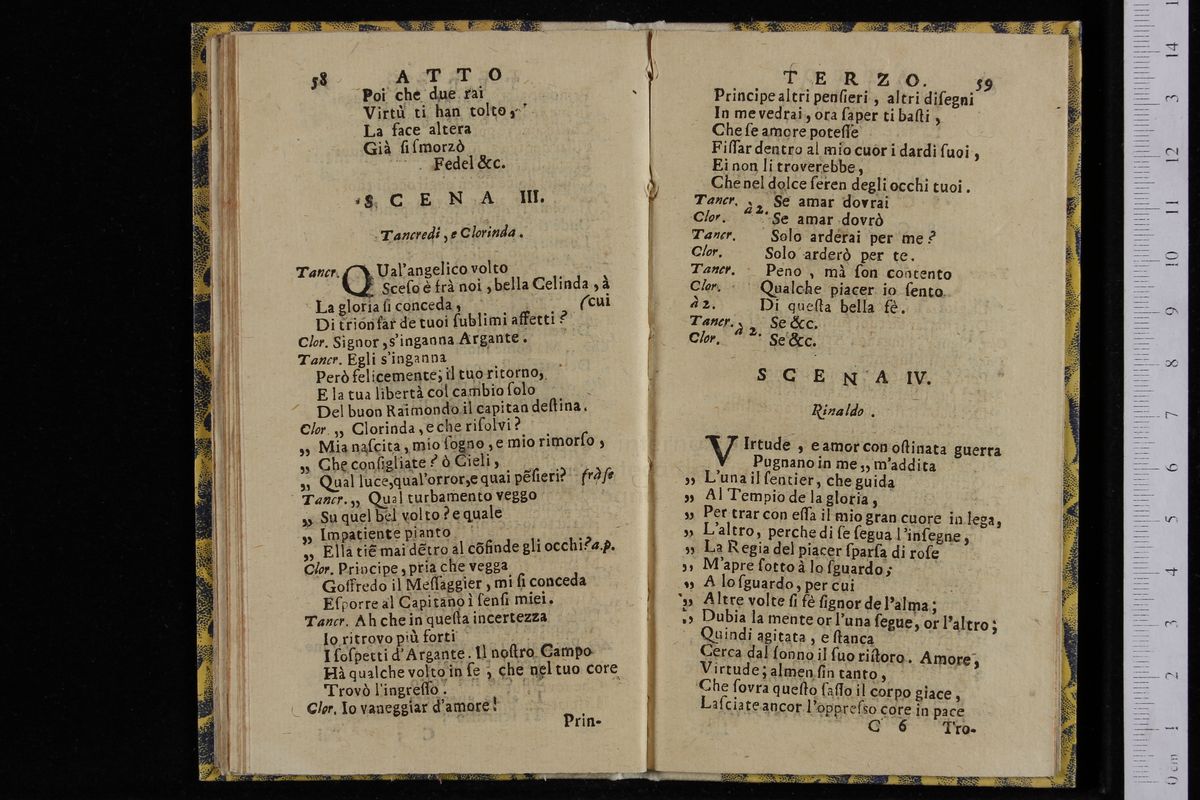 58 ATTO
Poi che due rai
Virtù ti han tolto,
La face altera
Già ſi ſmorzò
Fedel &c.
SCENA III.
Tancredi, e Clorinda.
Tancr. QUal'angelico volto
Sceſo è frà noi, bella Celinda, à
La gloria ſi conceda, (cui
Di trionfar de tuoi ſublimi affetti?
Clor. Signor, s'inganna Argante.
Tancr. Egli s'inganna
Però felicemente; il tuo ritorno,
E la tua libertà col cambio ſolo
Del buon Raimondo il capitan deſtina.
Clor „ Clorinda, e che riſolvi?
„ Mia naſcita, mio ſogno, e mio rimorſo,
„ Che conſigliate? ò Cieli,
„ Qual luce, qual'orror, e quai pẽſieri? frà ſe
Tancr. „ Qual turbamento veggo
„ Su quel bel volto? e quale
„ Impatiente pianto
„ Ella tiẽ mai dẽtro al cõfin de gli occhi? a.p.
Clor. Principe, pria che vegga
Goffredo il Meſſaggier, mi ſi conceda
Eſporre al Capitano i ſenſi miei.
Tancr. Ah che in queſta incertezza
Io ritrovo più forti
I ſoſpetti d'Argante. Il noſtro Campo
Hà qualche volto in ſe, che nel tuo core
Trovò l'ingreſſo.
Clor. Io vaneggiar d'amore!
Prin-
TERZO. 59
Principe altri penſieri, altri diſegni
In me vedrai, ora ſaper ti baſti,
Che ſe amore poteſſe
Fiſſar dentro al mio cuor i dardi ſuoi,
Ei non li troverebbe,
Che nel dolce ſeren degli occhi tuoi.
Tancr. à 2. Se amar dovrai
Clor. Se amar dovrò
Tancr. Solo arderai per me?
Clor. Solo arderò per te.
Tancr. Peno, mà ſon contento
Clor. Qualche piacer io ſento
à 2. Di queſta bella fè.
Tancr. à 2. Se &c.
Clor. Se &c.
SCENA IV.
Rinaldo.
VIrtude, e amor con oſtinata guerra
Pugnano in me „ m'addita
„ L'una il ſentier, che guida
„ Al Tempio de la gloria,
„ Per trar con eſſa il mio gran cuore in lega,
„ L'altro, perche di ſe ſegua l'inſegne,
„ La Regia del piacer ſparſa di roſe
„ M'apre ſotto à lo ſguardo;
„ A lo ſguardo, per cui
„ Altre volte ſi fè ſignor de l'alma;
„ Dubia la mente or l'una ſegue, or l'altro;
Quindi agitata, e ſtanca
Cerca dal ſonno il ſuo riſtoro. Amore,
Virtude; almen fin tanto,
Che ſovra queſto ſaſſo il corpo giace,
Laſciate ancor l'oppreſso core in pace
C 6 Tro-